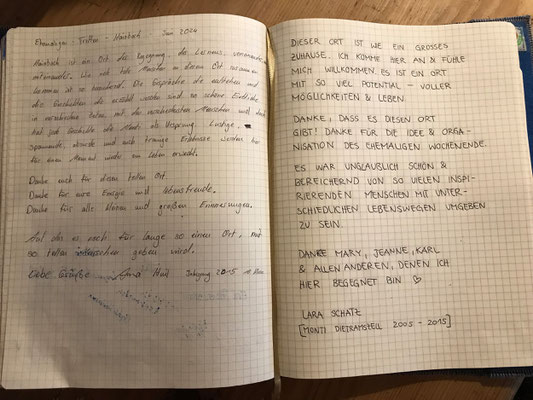 Ehemaligen - Treffen - Hainbuch - Juni 2024
Hainbuch ist ein Ort der Begegnung, des Lernens,
miteinander. Wie viele tolle Menschen an diesem Ort zusammen
kommen ist so
. Die Gespräche die entstehen und
die Geschichten die erzählt werden sind so schöne Einblicke
in verschiedene
den verschiedensten Menschen und doch
hat jede Geschichte die
als Ursprung. Lustige,
spannende, absurde und auch traurige Erlebnisse werden hier
für einen Moment wieder zum Leben erweckt.
Danke euch für diesen tollen Ort.
Danke für eure Energie und Lebensfreude.
Danke für alle kleinen und großen Erinnerungen.
Auf das es noch für lange so einen Ort, mit
so tollen Menschen geben wird.
Liebe Grüße
Jahrgang 2015
DIESER ORT IST WIE EIN GROSSES
ZUHAUSE. ICH KOMME HIER AN & FÜHLE
MICH WILLKOMMEN. ES IST EIN ORT
MIT SO VIEL POTENTIAL - VOLLER
MÖGLICHKEITEN & LEBEN.
DANKE, DASS ES DIESEN ORT
GIBT! DANKE FÜR DIE IDEE & ORGA-
NISATION DES EHEMALIGEN WOCHENENDE.
ES WAR UNGLAUBLICH SCHÖN &
BEREICHERND VON SO VIELEN INSPI-
RIERENDEN MENSCHEN MIT UNTER-
SCHIEDLICHEN LEBENSWEGEN UMGEBEN
ZU SEIN.
DANKE MARY, JEANNE, KARL
& ALLEN ANDEREN, DENEN ICH
HIER BEGEGNET BIN ♡
LARA SCHATZ
[MONTI DIETRAMSZELL 2005 - 2015]